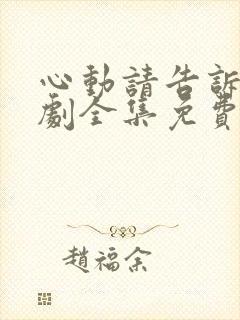 心動請告訴
劇全集免費
趙福余